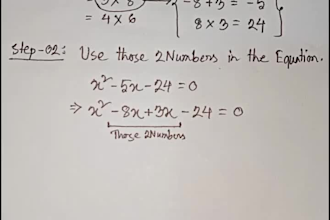 = 3 x 8
= 4 x 6
-8+3 = -5
8 x 3 = 24
Step-02: Use those 2 Numbers in the Equation.
x² - 5x - 24 = 0
⇒ x² - 8x + 3x - 24 = 0
Those 2 Numbers